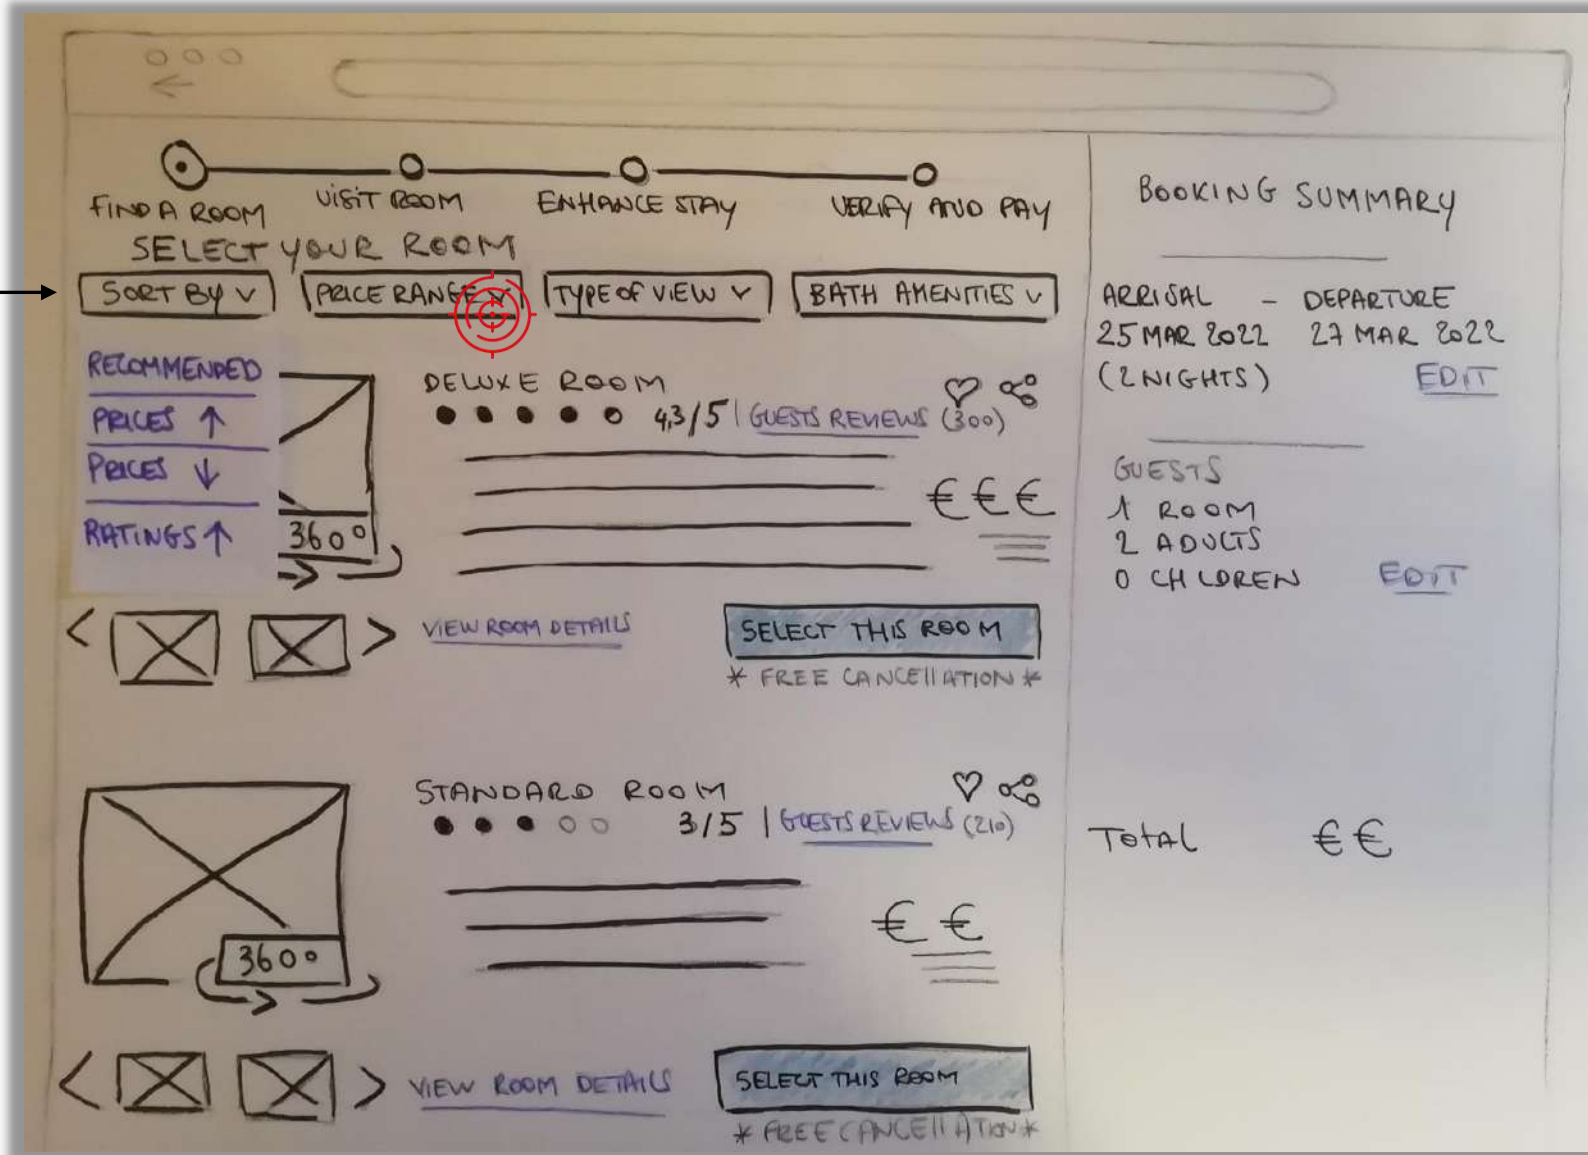 FIND A ROOM
VISIT ROOM
ENHANCE STAY
VERIFY AND PAY
SELECT YOUR ROOM
SORT BY
PRICE RANGE
TYPE OF VIEW
BATH AMENITIES
RECOMMENDED
PRICES ↑
PRICES ↓
RATINGS ↑
DELUXE ROOM
4,3/5 | GUESTS REVIEWS (300)
€ € €
360°
VIEW ROOM DETAILS
SELECT THIS ROOM
* FREE CANCELLATION *
STANDARD ROOM
3/5 | GUESTS REVIEWS (210)
€ €
360°
VIEW ROOM DETAILS
SELECT THIS ROOM
* FREE CANCELLATION *
BOOKING SUMMARY
ARRISAL - DEPARTURE
25 MAR 2022 27 MAR 2022
(2 NIGHTS) EDIT
GUESTS
1 ROOM
2 ADULTS
0 CHLDREN EDIT
TOTAL € €